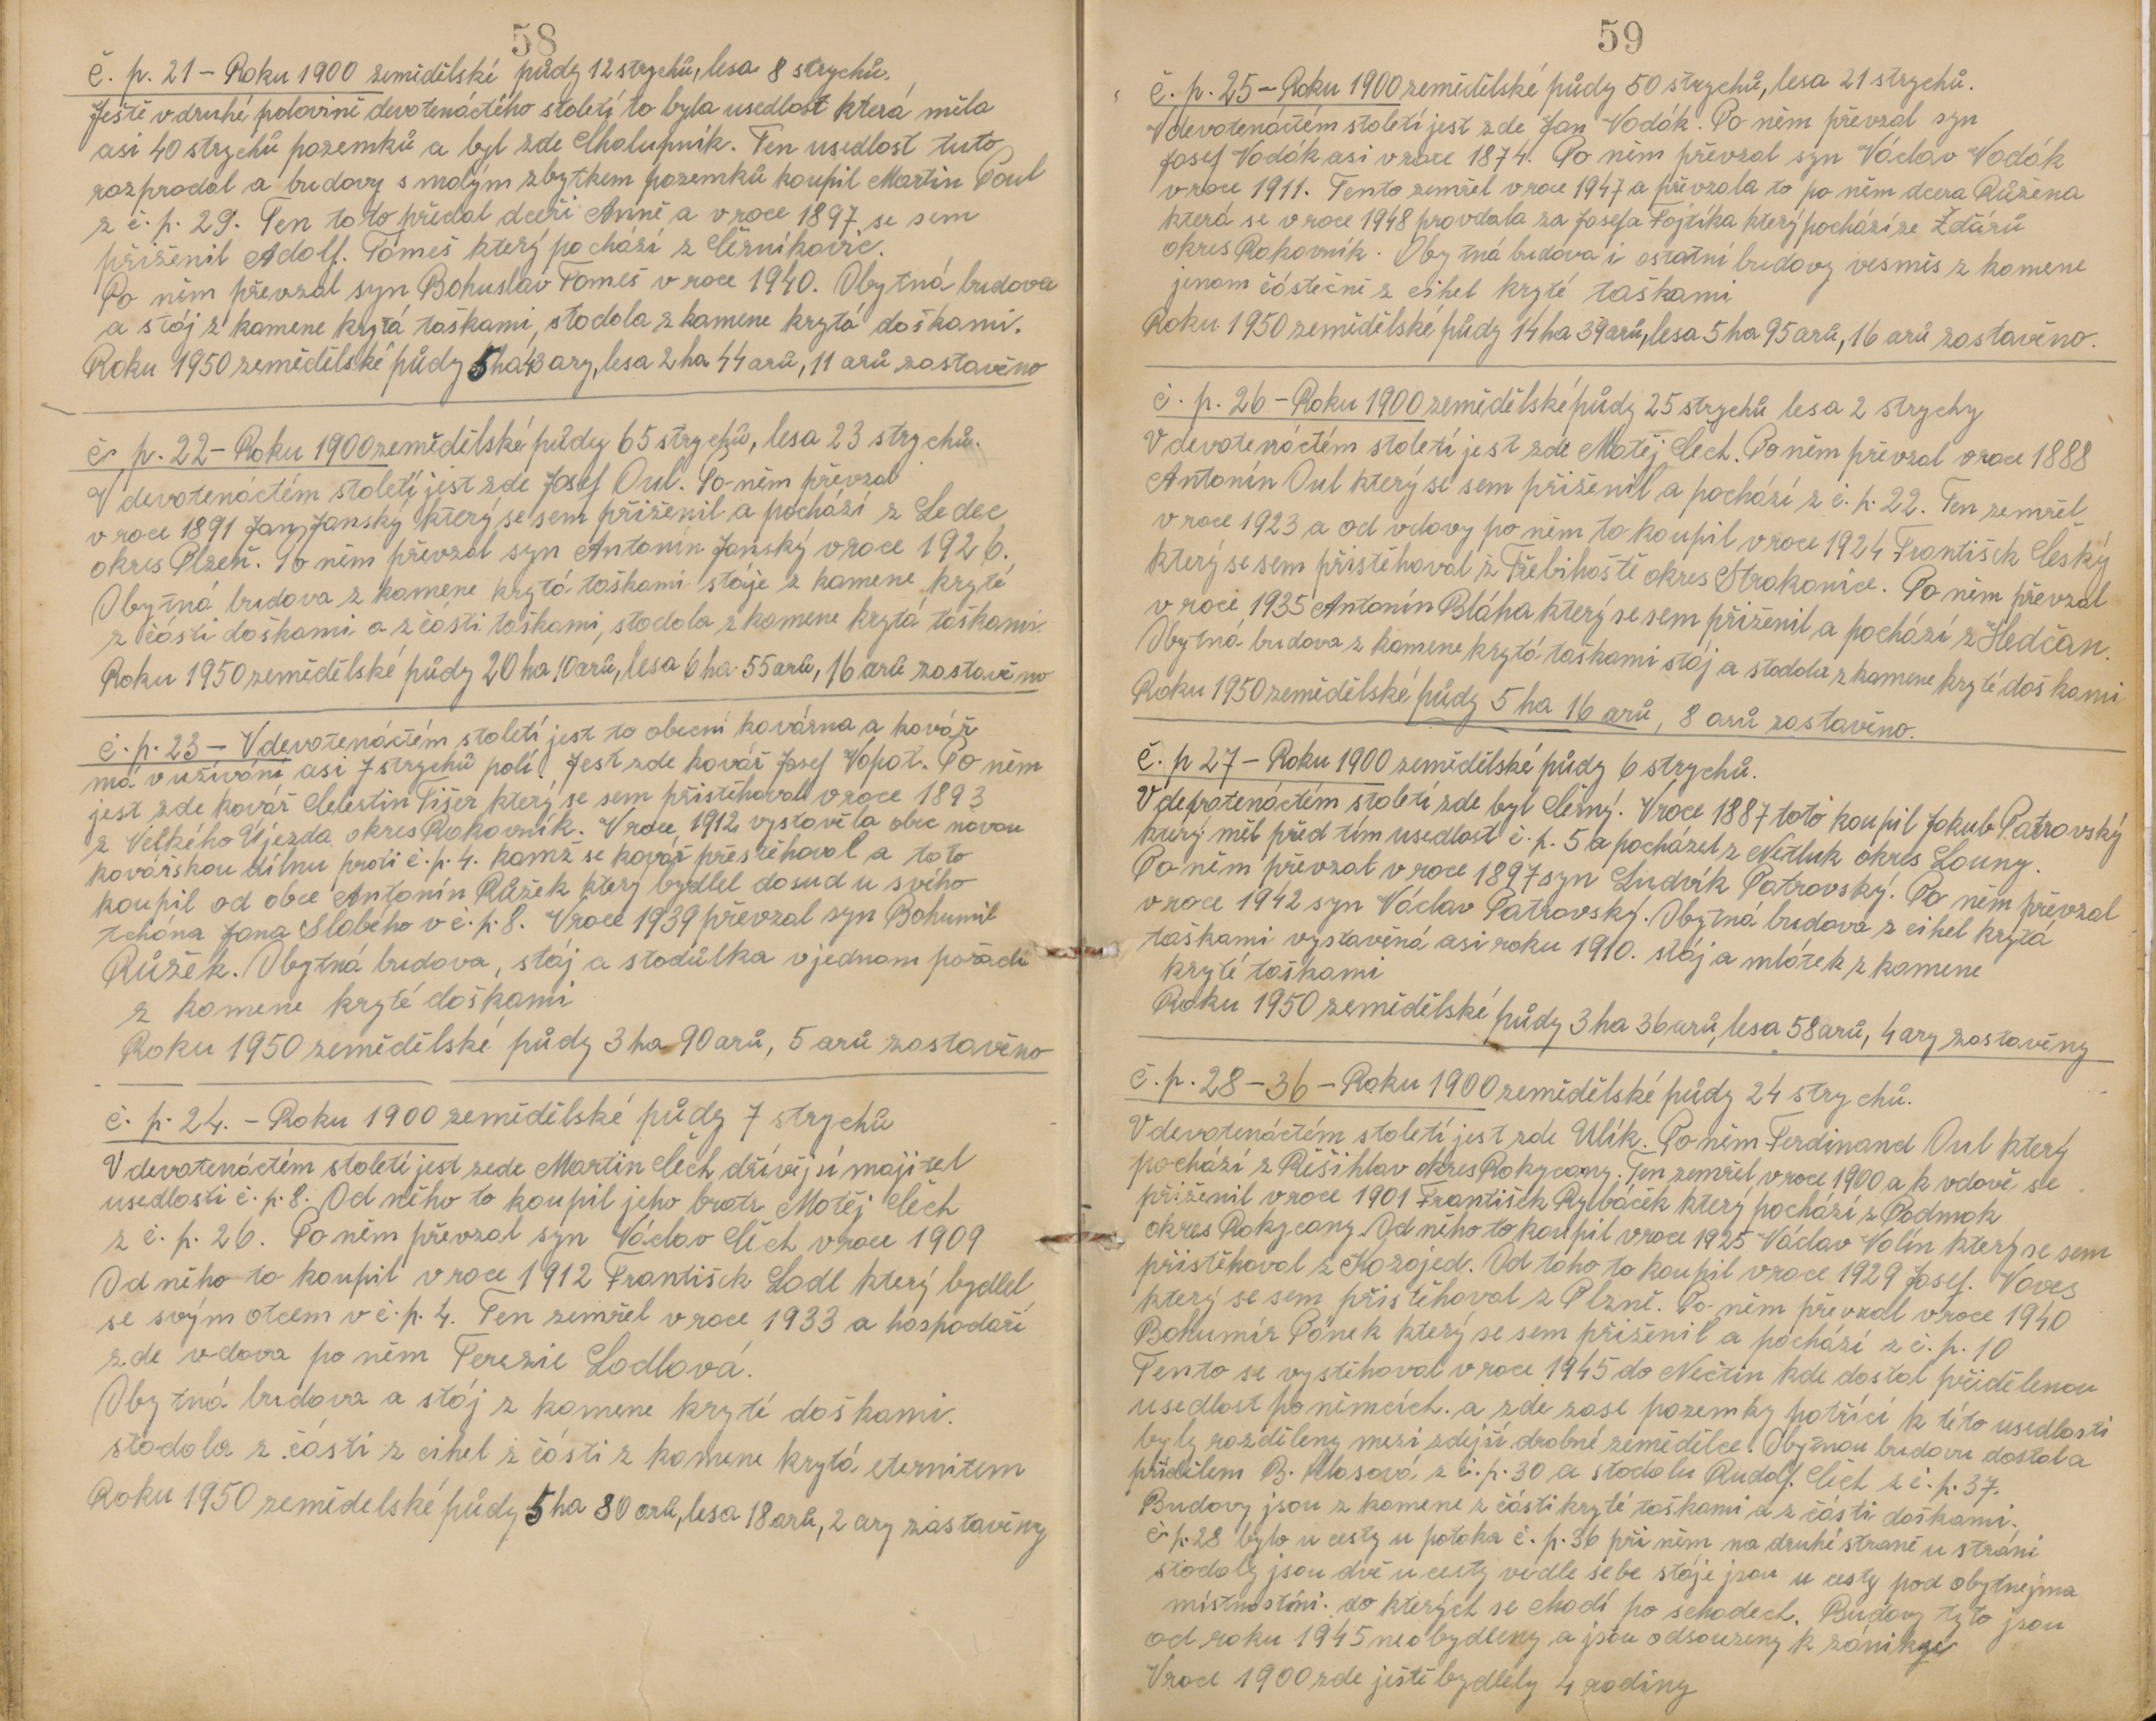 58
č. p. 21 – Roku 1900 zemědělské půdy 12 strychů, lesa 8 strychů.
Ještě v druhé polovině devatenáctého století to byla usedlost která měla
asi 40 strychů pozemků a byl zde Chalupník. Ten usedlost tuto
rozprodal a budovy s malým zbytkem pozemků koupil Martin Oul
z č. p. 29. Ten toto předal dceři Anně a v roce 1897 se sem
přiženil Adolf. Tomeš který pochází z Černíkovic.
Po něm převzal syn Bohuslav Tomeš v roce 1940. Obytná budova
a stáj z kamene krytá taškami, stodola z kamene krytá doškami.
Roku 1950 zemědělské půdy 5 ha 43 ary, lesa 2 ha 44 arů, 11 arů zastavěno
č. p. 22 – Roku 1900 zemědělské půdy 65 strychů, lesa 23 strychů.
V devatenáctém století jest zde Josef Oul. Po něm převzal
v roce 1891 Jan Janský který se sem přiženil a pochází z Ledec
okres Plzeň. Po něm převzal syn Antonín Janský v roce 1926.
Obytná budova z kamene krytá taškami stáje z kamene kryté
z části doškami a z části taškami, stodola z kamene krytá taškami.
Roku 1950 zemědělské půdy 20 ha 10 arů, lesa 6 ha 55 arů, 16 arů zastavěno
č. p. 23 – V devatenáctém století jest to obecní kovárna a kovář
má v užívání asi 7 strychů polí. Jest zde kovář Josef Vopat. Po něm
jest zde kovář Celestin Tišer který se sem přistěhoval v roce 1893
z Velkého Újezda okres Rakovník. V roce 1912 vystavěla obec novou
kovářskou dílnu proti č. p. 4. kamž se kovář přestěhoval a toto
koupil od obce Antonín Růžek který bydlel dosud u svého
tchána Jana Slabého v č. p. 8. V roce 1939 převzal syn Bohumil
Růžek. Obytná budova, stáj a stodůlka v jednom pořadí
z kamene kryté doškami
Roku 1950 zemědělské půdy 3 ha 90 arů, 5 arů zastavěno
č. p. 24. – Roku 1900 zemědělské půdy 7 strychů
V devatenáctém století jest zede Martin Čech dřívější majitel
usedlosti č. p. 8. Od něho to koupil jeho bratr Matěj Čech
z č. p. 26. Po něm převzal syn Václav Čech v roce 1909
Od něho to koupil v roce 1912 František Lodl který bydlel
se svým otcem v č. p. 4. Ten zemřel v roce 1933 a hospodaří
zde vdova po něm Terezie Lodlová.
Obytná budova a stáj z kamene kryté doškami.
stodola z části z cihel z části z kamene krytá eternitem
Roku 1950 zemědelské půdy 5 ha 80 arů, lesa 18 arů, 2 ary zastavěny
59
č. p. 25 – Roku 1900 zemědělské půdy 50 strychů, lesa 21 strychů.
V devatenáctém století jest zde Jan Vodák. Po něm převzal syn
Josef Vodák asi v roce 1874. Po něm převzal syn Václav Vodák
v roce 1911. Tento zemřel v roce 1947 a převzala to po něm dcera Růžena
která se v roce 1948 provdala za Josefa Fojtíka který pochází ze Ždáru
okres Rakovník. Obytná budova i ostatní budovy vesměs z kamene
jenom částečně z cihel kryté taškami
Roku 1950 zemědělské půdy 14 ha 39 arů, lesa 5 ha 95 arů, 16 arů zastavěno.
č. p. 26 – Roku 1900 zemědělské půdy 25 strychů lesa 2 strychy
V devatenáctém století jest zde Matěj Čech. Po něm převzal v roce 1888
Antonín Oul který se sem přiženil a pochází z č. p. 22. Ten zemřel
v roce 1923 a od vdovy po něm to koupil v roce 1924 František Český
který se sem přistěhoval z Třebihoště okres Strakonice. Po něm převzal
v roce 1935 Antonín Bláha který se sem přiženil a pochází z Hedčan.
Obytná budova z kamene krytá taškami stáj a stodola z kamene kryté doškami
Roku 1950 zemědělské půdy 5 ha 16 arů, 8 arů zastavěno.
č. p 27 – Roku 1900 zemědělské půdy 6 strychů.
V devatenáctém století zde byl Černý. V roce 1887 toto koupil Jakub Patrovský
který měl před tím usedlost č. p. 5 a pocházel z Netluk okres Louny.
Po něm převzal v roce 1897 syn Ludvík Patrovský. Po něm převzal
v roce 1942 syn Václav Patrovský. Obytná budova z cihel krytá
taškami vystavěná asi roku 1910. stáj a mlátek z kamene
kryté taškami
Roku 1950 zemědělské půdy 3 ha 36 arů, lesa 58 arů, 4 ary zastavěny
č. p. 28 – 36 – Roku 1900 zemědělské půdy 24 strychů.
V devatenáctém století jest zde Ulík. Po něm Ferdinand Oul který
pochází z Řešihlav okres Rokycany. Ten zemřel v roce 1900 a k vdově se
přiženil v roce 1901 František Rybáček který pochází z Podmok
okres Rokycany. Od něho to koupil v roce 1925 Václav Volín který se sem
přistěhoval z Kozojed. Od toho to koupil v roce 1929 Josef. Voves
který se sem přistěhoval z Plzně. Po něm převzal v roce 1940
Bohumír Pánek který se sem přiženil a pochází z č. p. 10
Tento se vystěhoval v roce 1945 do Nečtin kde dostal přidělenou
usedlost po němcích. a zde zase pozemky patřící k této usedlosti
byly rozděleny mezi zdejší drobné zemědělce. Obytnou budovu dostala
přídělem B. Klasová z č. p. 30 a stodolu Rudolf. Čech z č. p. 37.
Budovy jsou z kamene z části kryté taškami a z části doškami.
č p. 28 bylo u cesty u potoka č. p. 36 při něm na druhé straně u stráni
stodoly jsou dvě u cesty vedle sebe stáje jsou u cesty pod obytnejma
místnostmi. do kterých se chodí po schodech. Budovy tyto jsou
od roku 1945 neobydleny a jsou odsouzeny k zániku
V roce 1900 zde ještě bydlely 4 rodiny